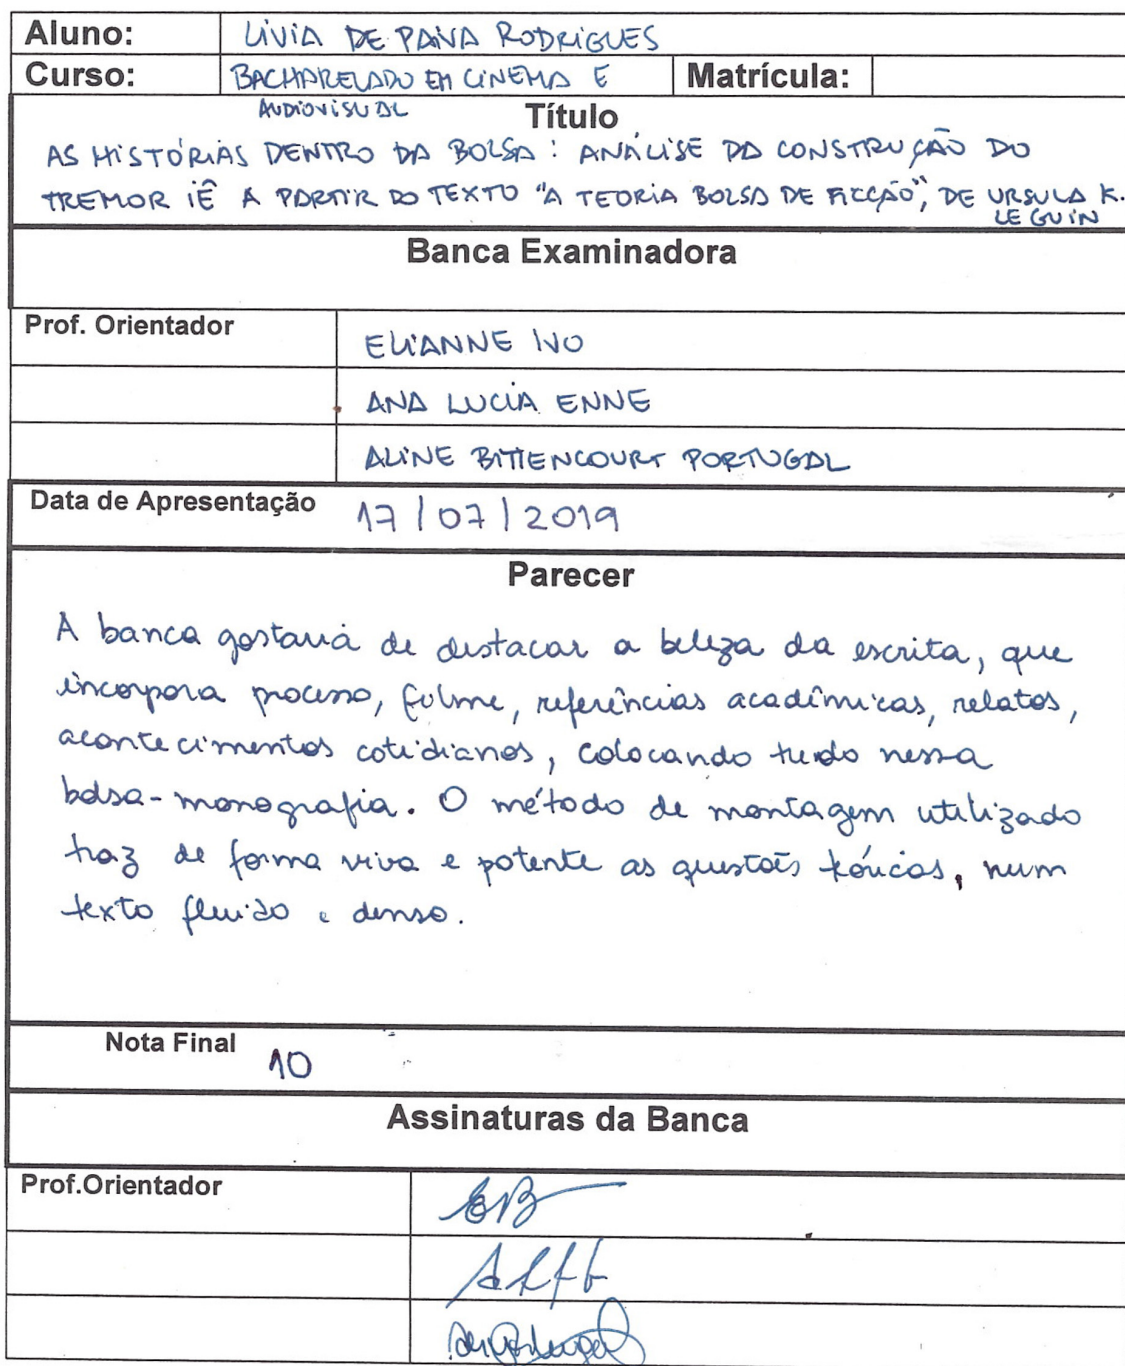 Aluno: LIVIA DE PAIVA RODRIGUES
Curso: BACHARELADO EM CINEMA E AUDIOVISUAL Matrícula:
Título
AS HISTÓRIAS DENTRO DA BOLSA: ANÁLISE DA CONSTRUÇÃO DO
TREMOR IÊ A PARTIR DO TEXTO "A TEORIA BOLSA DE FICÇÃO", DE URSULA K.
LE GUIN
Banca Examinadora
Prof. Orientador ELIANNE IVO
ANA LUCIA ENNE
ALINE BITTENCOURT PORTUGAL
Data de Apresentação 17/07/2019
Parecer
A banca gostaria de destacar a beleza da escrita, que
incorpora processo, filme, referências acadêmicas, relatos,
acontecimentos cotidianos, colocando tudo nessa
bolsa-monografia. O método de montagem utilizado
traz de forma viva e potente as questões teóricas, num
texto fluido e denso.
Nota Final 10
Assinaturas da Banca
Prof.Orientador